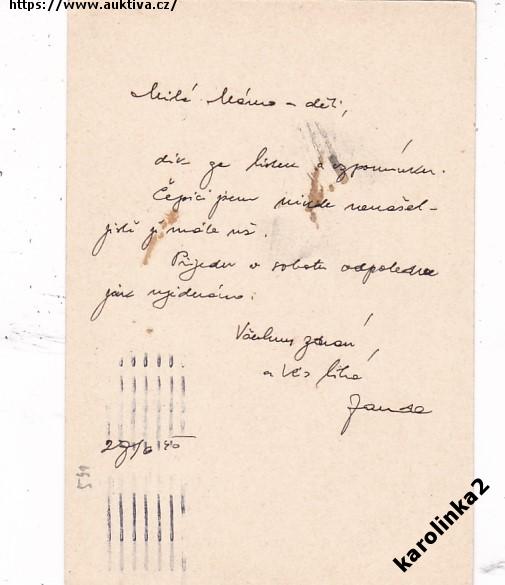 https://www.auktiva.cz/
Milá Mámo – děti,
dík za lístek a vzpomínku.
Čepici jsem nikde nenašel –
jistě ji máte už.
Přijedu v sobotu odpoledne
jak ujednáno.
Všechny zdraví
a Vás líbá
karolinka2